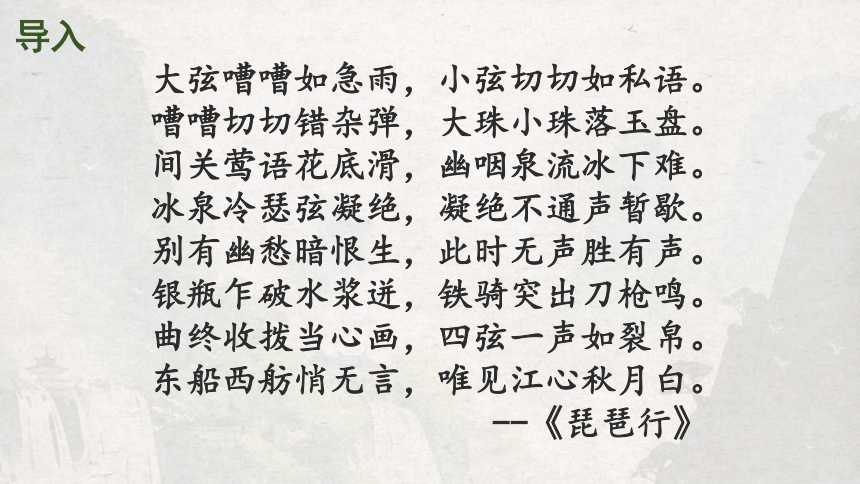 导入
大弦嘈嘈如急雨，小弦切切如私语。
嘈嘈切切错杂弹，大珠小珠落玉盘。
间关莺语花底滑，幽咽泉流冰下难。
冰泉冷瑟弦凝绝，凝绝不通声暂歇。
别有幽愁暗恨生，此时无声胜有声。
银瓶乍破水浆迸，铁骑突出刀枪鸣。
曲终收拨当心画，四弦一声如裂帛。
东船西舫悄无言，唯见江心秋月白。
--《琵琶行》